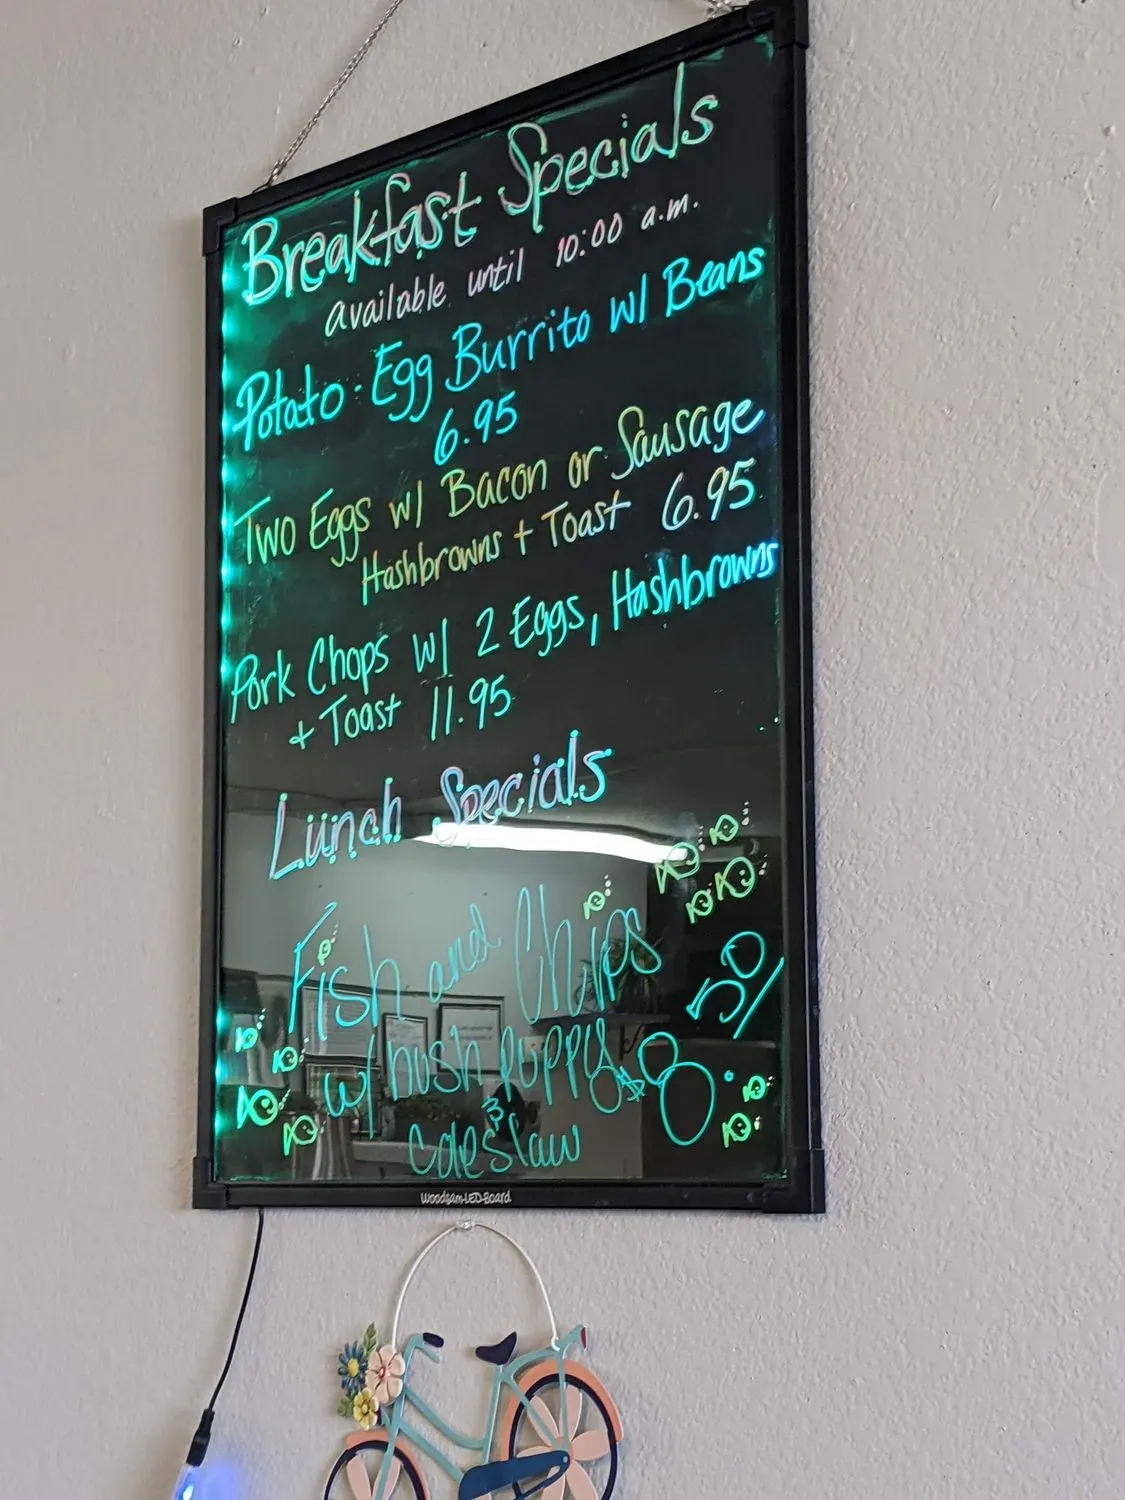 Breakfast Specials
available until 10:00 a.m.
Potato · Egg Burrito w/ Beans
6.95
Two Eggs w/ Bacon or Sausage
Hashbrowns + Toast 6.95
Pork Chops w/ 2 Eggs, Hashbrowns
+ Toast 11.95
Lunch Specials
Fish and Chips
w/ hush puppy
coleslaw
Woodsam-LED-Board